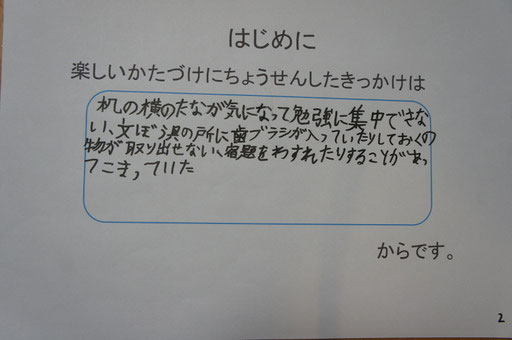 はじめに
楽しいかたづけにちょうせんしたきっかけは
机の横のたなが気になって勉強に集中できな
い、文ぼう具の所に歯ブラシが入っていたりしておくの
物が取り出せない、宿題をわすれたりすることがあっ
てこまっていた
からです。
2